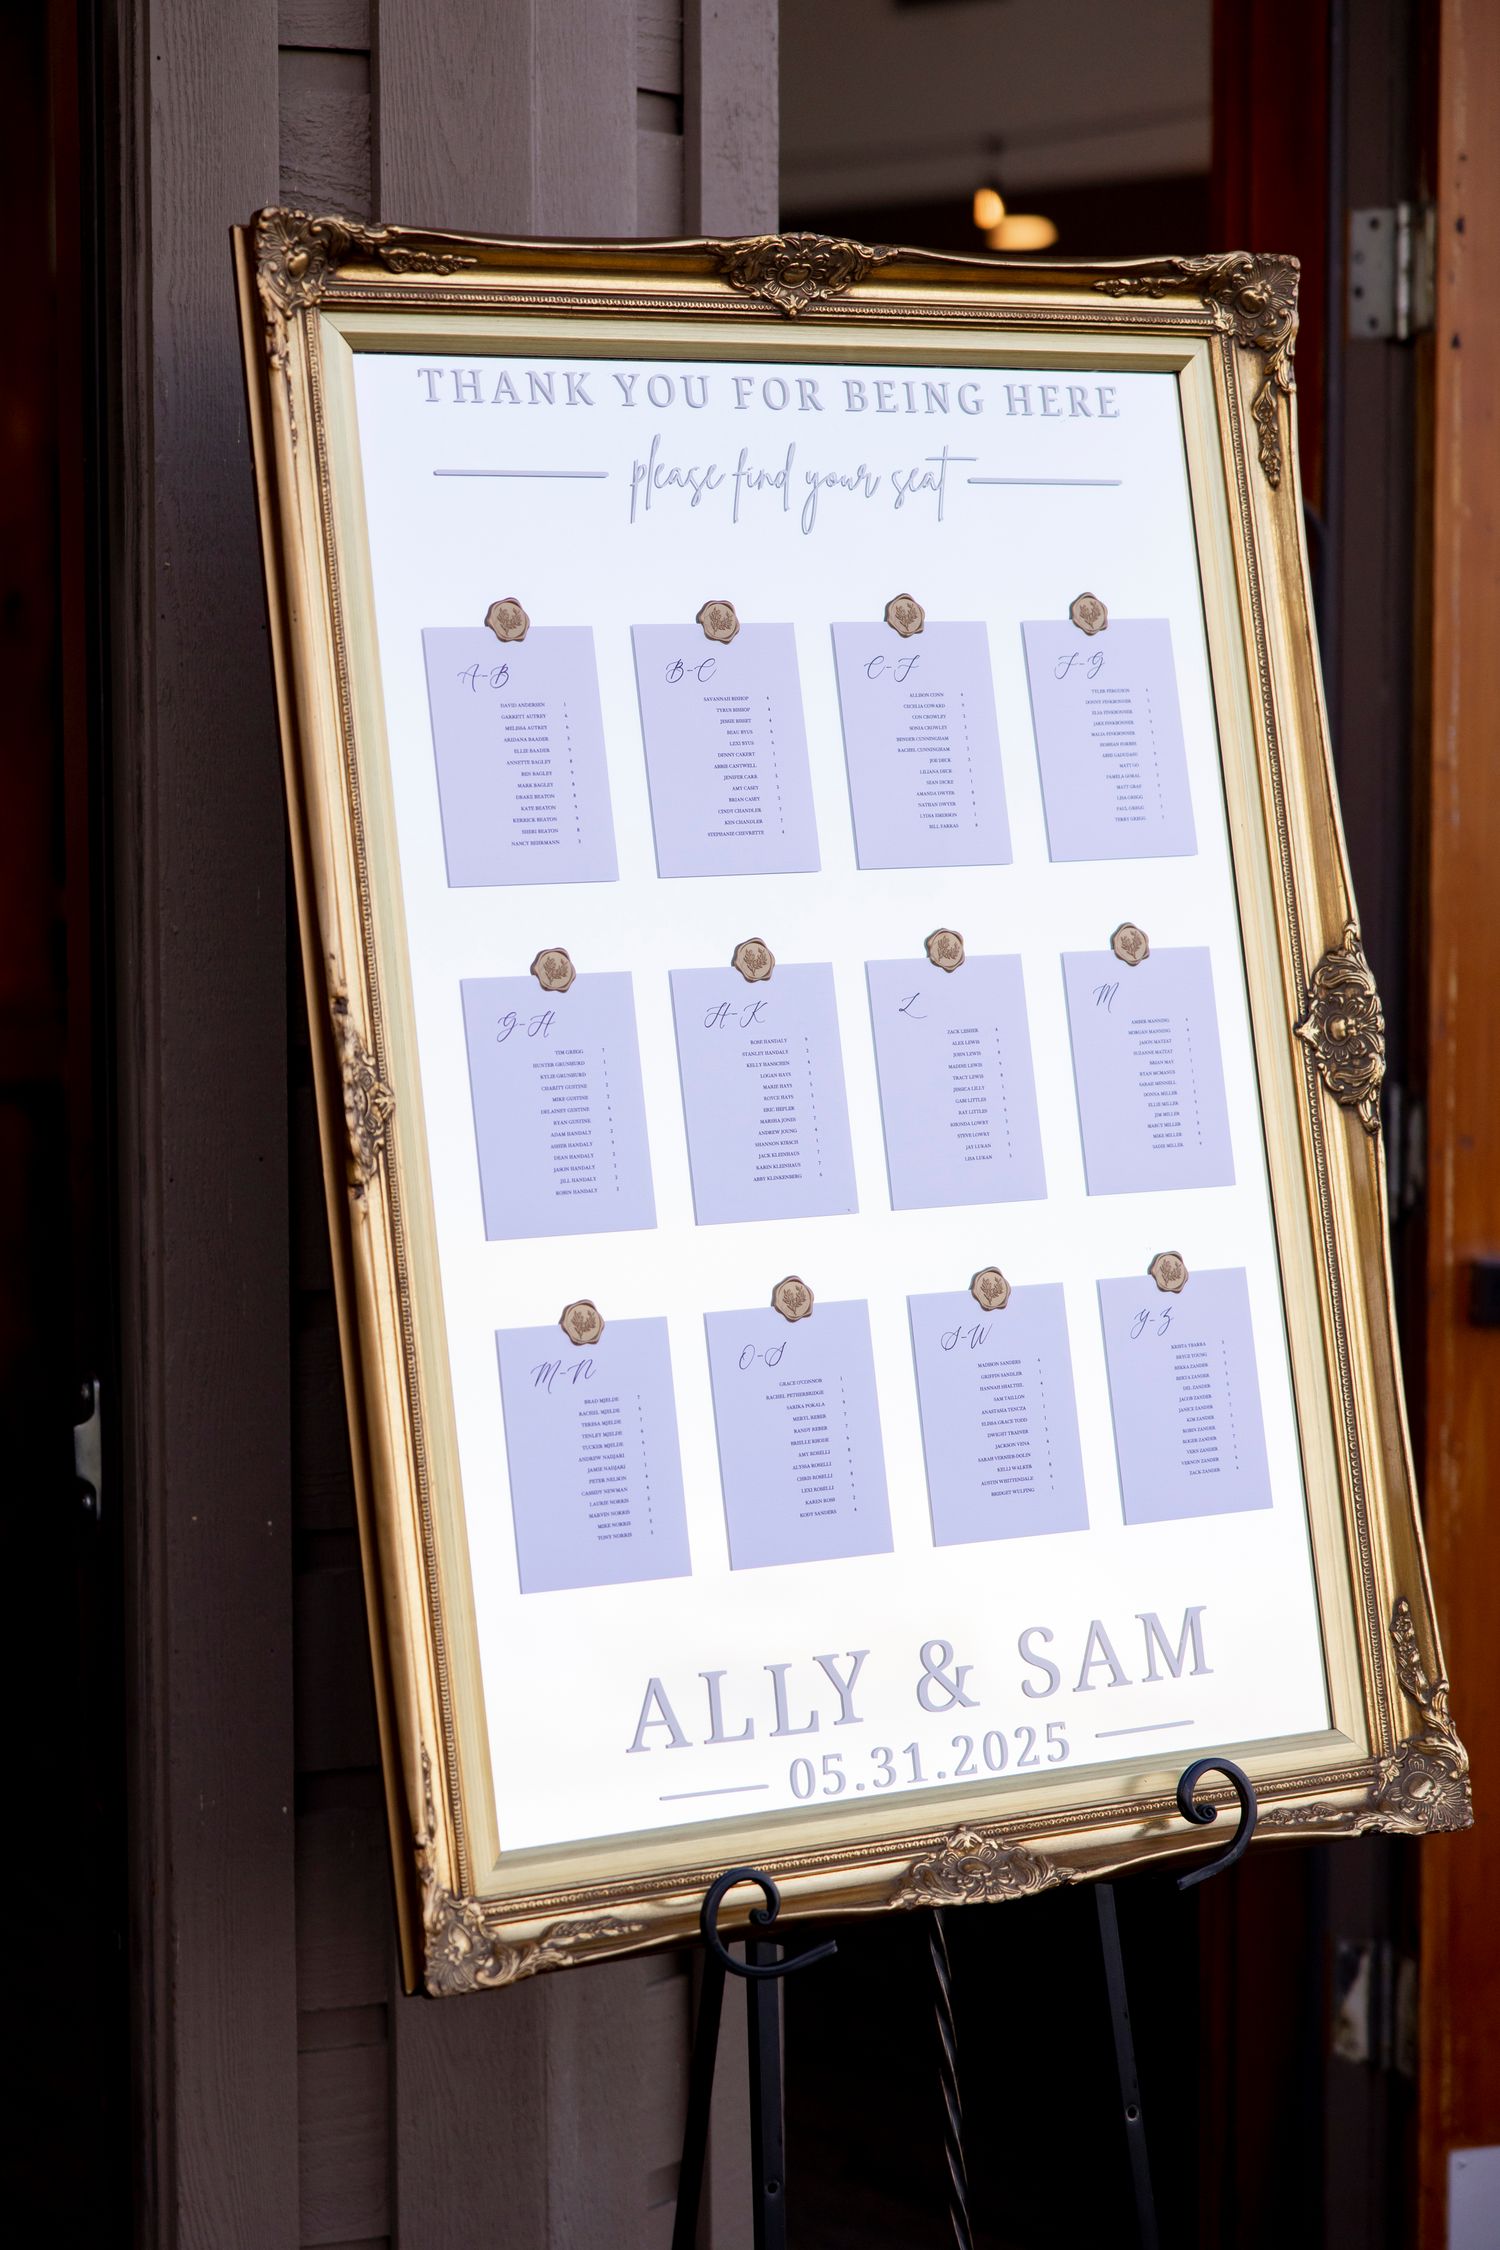 THANK YOU FOR BEING HERE
please find your seat
A-B
DAVID ANDERSEN 1
GARRETT AUTREY 6
MELISSA AUTREY 6
ARIDANA BAADER 5
ELLIE BAADER 9
ANNETTE BAGLEY 8
BEN BAGLEY 9
MARK BAGLEY 8
DRAKE BEATON 8
KATE BEATON 9
KERRICK BEATON 9
SHERI BEATON 8
NANCY BEHRMANN 3
B-C
SAVANNAH BISHOP 4
TYRUS BISHOP 4
JESSIE BISSET 4
BEAU BYUS 6
LEXI BYUS 6
DENNY CAKERT 1
ABBIE CANTWELL 1
JENIFER CARR 5
AMY CASEY 2
BRIAN CASEY 2
CINDY CHANDLER 7
KEN CHANDLER 7
STEPHANIE CHEVRETTE 4
C-F
ALLISON CONN 6
CECELIA COWARD 9
CON CROWLEY 2
SONIA CROWLEY 2
BENDER CUNNINGHAM 2
RACHEL CUNNINGHAM 2
JOE DECK 3
LILIANA DECK
SEAN DICKE 1
AMANDA DWYER
NATHAN DWYER
LYDIA EMERSON 1
BILL FARKAS 8
F-G
TYLER FERGUSON
DONNY FINKBONNER
ELSA FINKBONNER
JAKE FINKBONNER
MALIA FINKBONNER
SIOBHAN FORBES
ABBI GADUDASU
MATT GO
PAMELA GORAL
MATT GRAF
LISA GREGG 7
PAUL GREGG 7
TERRY GREGG
G-H
TIM GREGG 7
HUNTER GRUNHURD 1
KYLIE GRUNHURD 1
CHARITY GUSTINE 2
MIKE GUSTINE 2
DELAINEY GUSTINE 6
RYAN GUSTINE 6
ADAM HANDALY 2
ASHER HANDALY 9
DEAN HANDALY 2
JASON HANDALY 2
JILL HANDALY 2
ROBIN HANDALY 2
H-K
ROSE HANDALY 9
STANLEY HANDALY 2
KELLY HANSCHEN 4
LOGAN HAYS 5
MARIE HAYS 5
ROYCE HAYS 5
ERIC HEPLER 1
MARSHA JONES 7
ANDREW JOUNG 4
SHANNON KIRSCH 1
JACK KLEINHAUS 7
KARIN KLEINHAUS 7
ABBY KLINKENBERG 6
L
ZACK LESHER 4
ALEX LEWIS 9
JOHN LEWIS 8
MADDIE LEWIS 9
TRACY LEWIS 8
JESSICA LILLY 1
GABI LITTLES 6
RAY LITTLES 6
RHONDA LOWRY 5
STEVE LOWRY 5
JAY LUKAN 5
LISA LUKAN 5
M
AMBER MANNING 4
MORGAN MANNING 4
JASON MATZAT 7
SUZANNE MATZAT 7
BRIAN MAY 1
RYAN MCMANUS 1
SARAH MENNELL 1
DONNA MILLER
ELLIE MILLER
JIM MILLER
MARCY MILLER
MIKE MILLER
SADIE MILLER
M-N
BRAD MJELDE 7
RACHEL MJELDE 6
TERESA MJELDE 7
TENLEY MJELDE 6
TUCKER MJELDE 6
ANDREW NADJARI 1
JAMIE NADJARI 1
PETER NELSON 4
CASSIDY NEWMAN 4
LAURIE NORRIS 5
MARVIN NORRIS 5
MIKE NORRIS 5
TONY NORRIS 5
O-S
GRACE O'CONNOR 1
RACHEL PETHERBRIDGE 1
SARIKA POKALA 9
MERYL REBER 7
RANDY REBER 7
BRIELLE RHODE 6
AMY ROSELLI 8
ALYSSA ROSELLI 9
CHRIS ROSELLI 8
LEXI ROSELLI 9
KAREN ROSS 2
KODY SANDERS 4
S-W
MADISON SANDERS 4
GRIFFIN SANDLER 1
HANNAH SHALTIEL 4
SAM TAILLON 1
ANASTASIA TENUZA 1
ELISSA GRACE TODD 1
DWIGHT TRAINER 3
JACKSON VENA 4
SARAH VERNIER-DOLIN 1
KELLI WALKER 8
AUSTIN WHITTENDALE 6
BRIDGET WULFING 1
Y-Z
KRISTA YBARRA
BRYCE YOUNG
BEKKA ZANDER
BERTA ZANDER
DEL ZANDER
JACOB ZANDER
JANICE ZANDER
KIM ZANDER
ROBIN ZANDER
ROGER ZANDER
VERN ZANDER
VERNON ZANDER
ZACK ZANDER
ALLY & SAM
05.31.2025